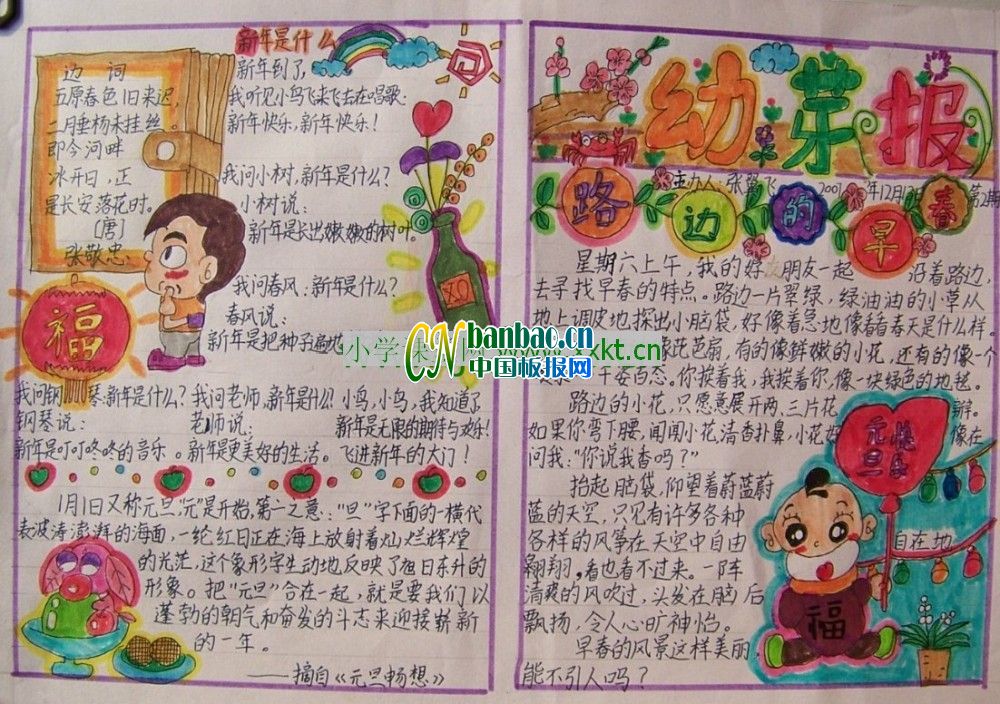 边 词
五原春色旧来迟,
二月垂杨未挂丝。
即今河畔
冰开日,正
是长安落花时。
〔唐〕
张敬忠
福
新年是什么
新年到了,
我听见小鸟飞来飞去在唱歌:
新年快乐,新年快乐!
我问小树,新年是什么?
小树说:
新年是长出嫩嫩的树叶。
我问春风:新年是什么?
春风说:
新年是把种子遍地
XO
我问钢琴:新年是什么?
钢琴说:
新年是叮叮咚咚的音乐。
我问老师,新年是什么?
老师说:
新年是更美好的生活。
小鸟,小鸟,我知道了
新年是无限的期待与欢乐!
飞进新年的大门!
1月1日又称元旦,“元”是开始,第一之意:“旦”字下面的一横代
表波涛澎湃的海面,一轮红日正在海上放射着灿烂辉煌
的光茫,这个象形字生动地反映了旭日东升的
形象。把“元旦”合在一起,就是要我们以
蓬勃的朝气和奋发的斗志来迎接崭新
的一年。
——摘自《元旦畅想》
幼芽报
主办人:张
飞
200
年12月
路边的早春
星期六上午,我的好朋友一起沿着路边,
去寻找早春的特点。路边一片翠绿,绿油油的小草从
地上调皮地探出小脑袋,好像着急地像看看春天是什么样。
像芭蕉扇,有的像鲜嫩的小花,还有的像一个
千姿百态。你挨着我,我挨着你,像一块绿色的地毯。
路边的小花,只愿意展开两、三片花瓣。
如果你弯下腰,闻闻小花,清香扑鼻,小花好像在
问我:“你说我香吗?”
抬起脑袋,仰望着蔚蓝蔚
蓝的天空,只见有许多各种
各样的风筝在天空中自由自在地
翱翔,看也看不过来。一阵
清爽的风吹过,头发在脑后
飘扬,令人心旷神怡。
早春的风景这样美丽
能不引人吗?
元旦
快乐
福
CN banbao.cn
中国板报网
小学课
www.
xxkt.cn